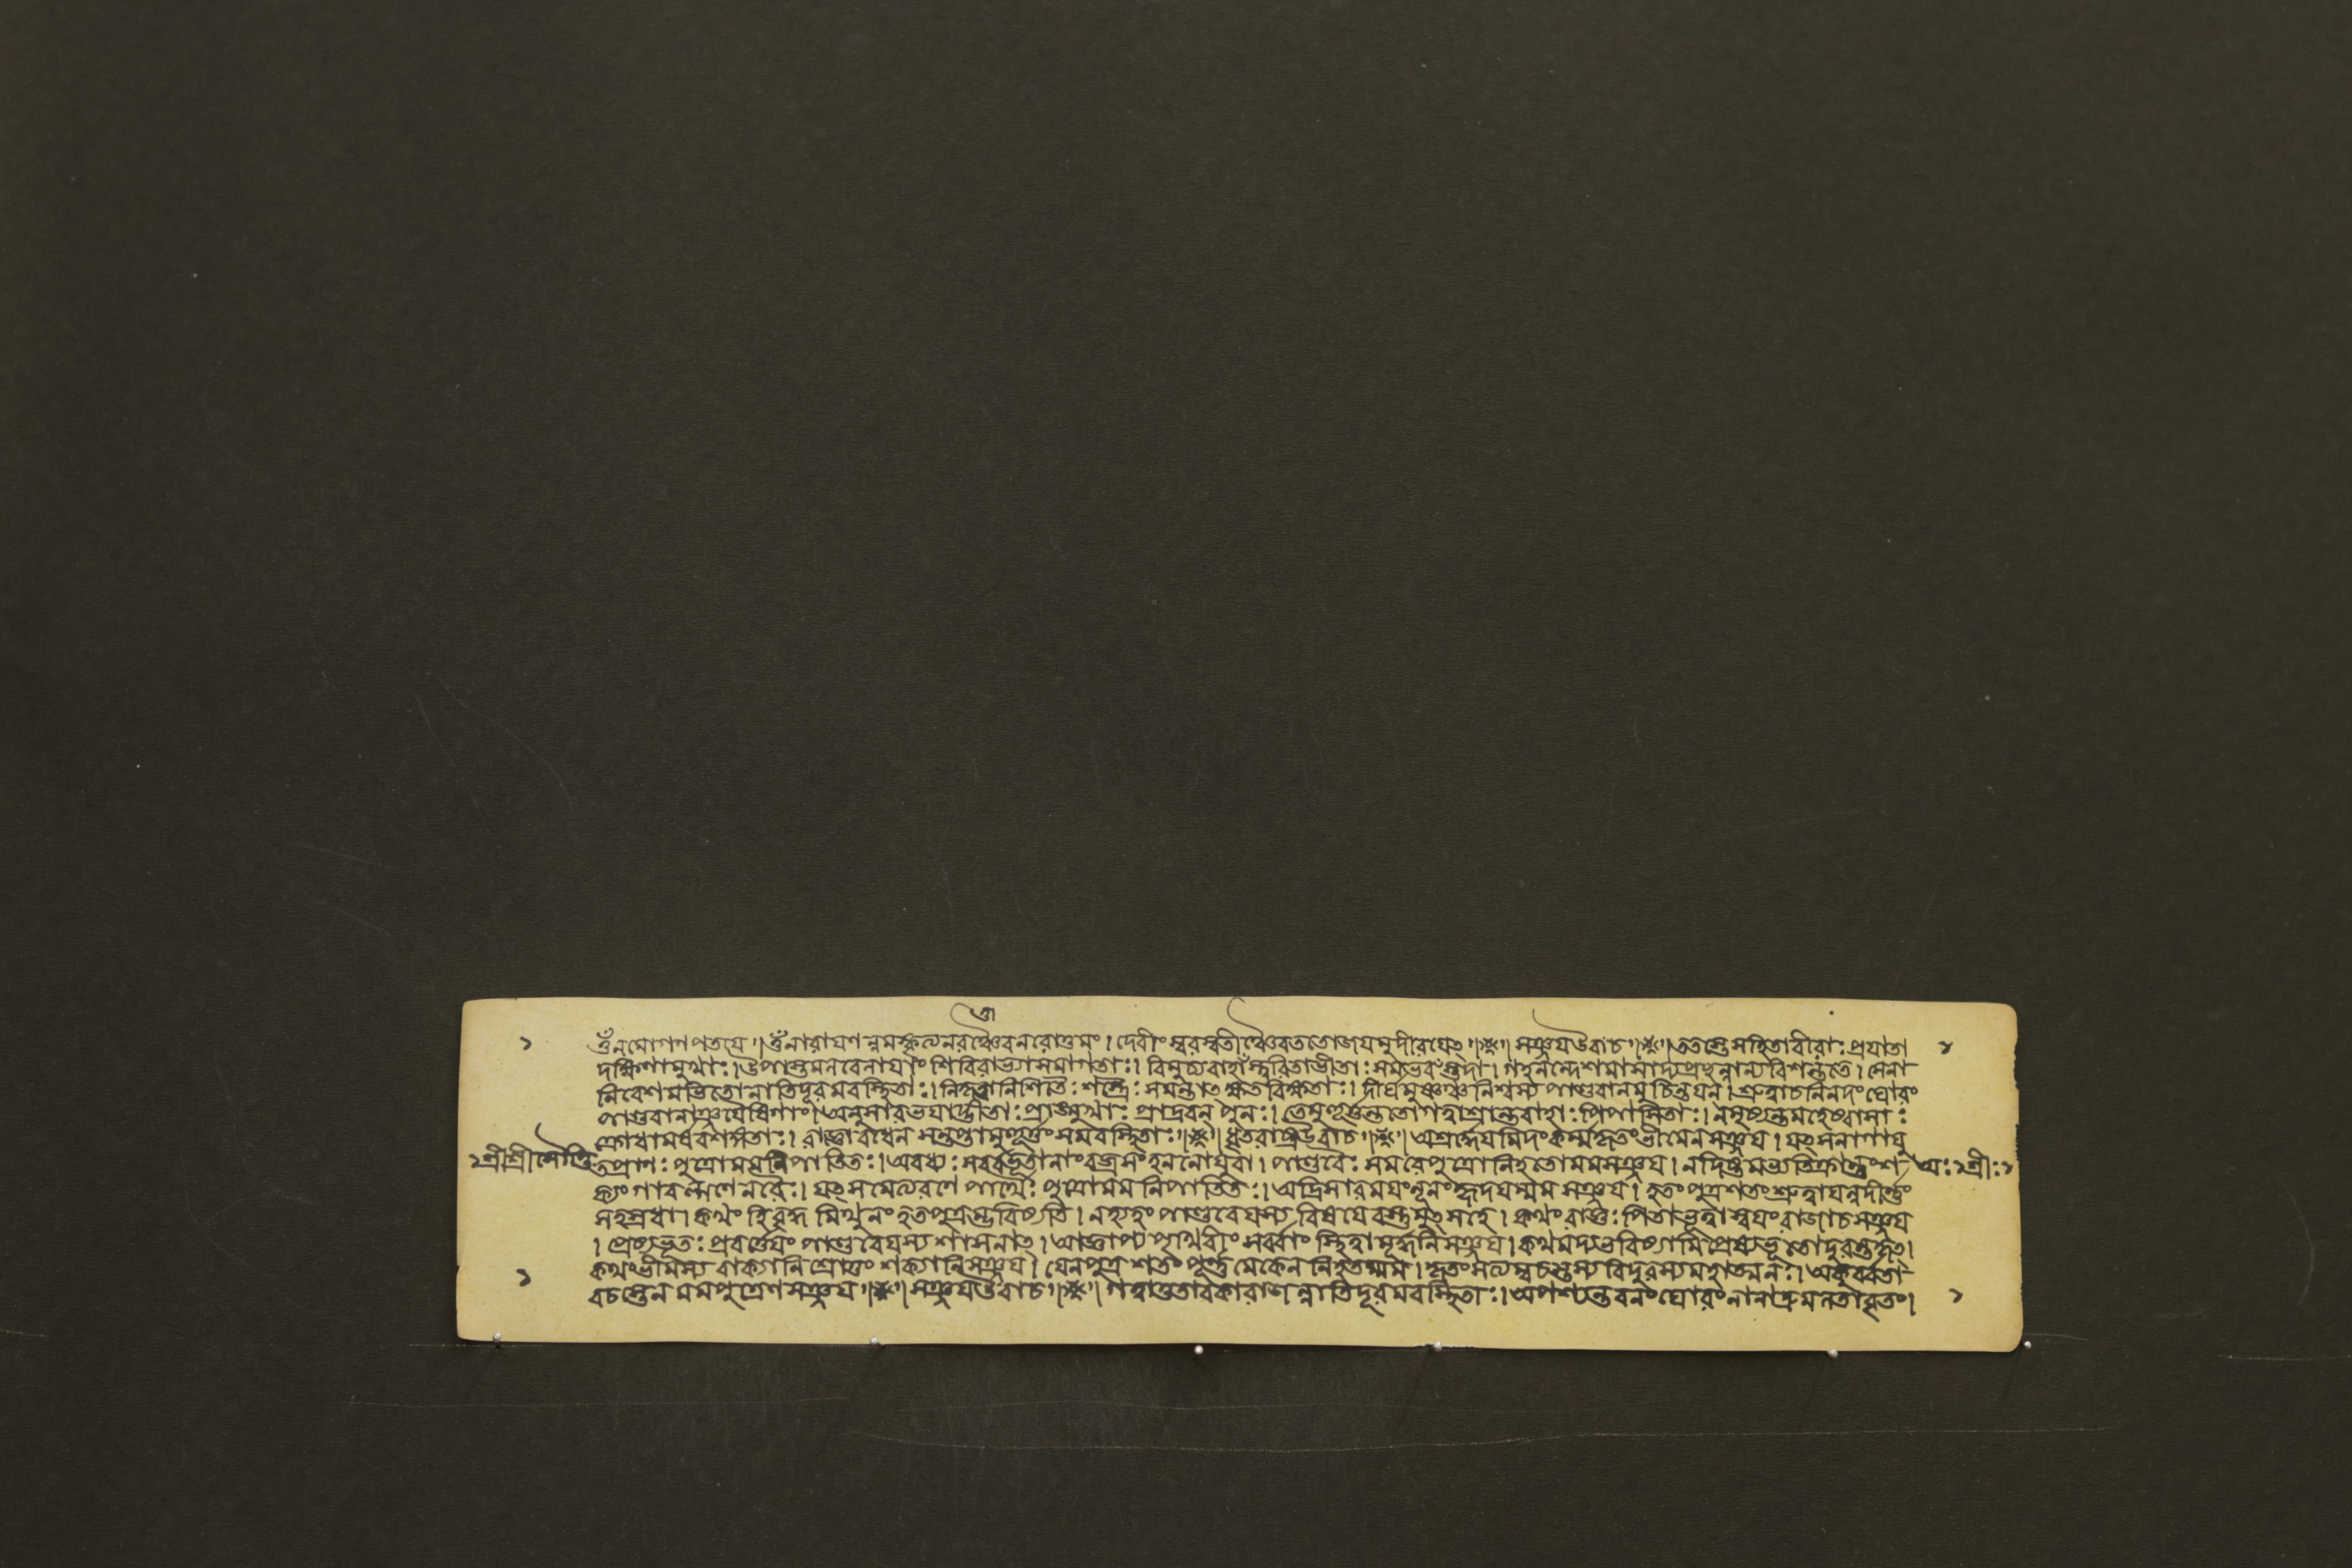 ওঁনমোগণপতয়ে॥ওঁনারায়ণন্নমস্কৃত্যনরঞ্চৈবনরোত্তমং।দেবীংস্বরস্বতীঞ্চৈবততোজয়মুদীরয়েৎ॥※॥সঞ্জয়উবাচ॥※॥ততস্তেসহিতাবীরাঃপ্রয়াতা
দক্ষিণামুখাঃ।উপাস্তমনবেলায়াং শিবিরাভ্যাসমাগতাঃ।বিমুচ্যবাহাঁস্ত্বরিতাভীতাঃসমভবঁস্তদা।গহনন্দেশমাসাদ্যপ্রচ্ছন্নান্যবিশন্ততে।সেনা
নিবেশমভিতোনাতিদূরমবস্থিতাঃ।নিকৃত্তানিশিতৈঃশস্ত্রৈঃসমন্তাৎক্ষতবিক্ষতাঃ।দীর্ঘমুষ্ণঞ্চনিশ্বস্যপাণ্ডবানন্বচিন্তয়ন।শ্রুত্বাচনিনদংঘোরং
পাণ্ডবানাঞ্জয়ৈষিণাং।অনুসারভয়াদ্ভীতাঃপ্রাঙ্মুখাঃ প্রাদ্রবন্ পুনঃ।তেমুহূর্ত্তন্ততোগত্বাশ্রান্তবাহাঃপিপাসিতাঃ।নমৃষ্যন্তমহেষ্বাসাঃ
ক্রোধামর্ষবশঙ্গতাঃ।রাজ্ঞোবধেনসন্তপ্তামুহূর্ত্তংসমবস্থিতাঃ॥※॥ধৃতরাষ্ট্রউবাচ॥※॥অশ্রদ্ধেয়মিদংকর্ম্মকৃতংভীমেনসঞ্জয়।যৎসনাগাযু
১শ্রীশ্রীসৌপ্তি
তপ্রাণঃপুত্রোমমনিপাতিতঃ।অবধ্যঃসর্ব্বভূতানাংবজ্রসংহননোযুবা।পাণ্ডবৈঃসমরেপুত্রোনিহতোমমসঞ্জয়।নদিষ্টমভ্যতিক্রান্তুংশ
অঃ১শ্রীঃ১
ক্যংগাবল্গণেনরৈঃ।যৎসমেত্যরণেপার্থৈঃপুত্রোমমনিপাতিতঃ।অদ্রিসারময়ংনূনংহৃদয়ম্মমসঞ্জয়।হতংপুত্রশতংশ্রুত্বাযন্নদীর্ণ্ণং
সহস্রধা।কথংহিবৃদ্ধমিথুনংহতপুত্রম্ভবিষ্যতি।নহ্যহংপাণ্ডবেয়স্যবিষয়েবস্তুমুৎসহে।কথংরাজ্ঞঃপিতাভূত্বাস্বয়ংরাজাচসঞ্জয়
।প্রেষ্যভূতঃপ্রবর্ত্তেয়ংপাণ্ডবেয়স্যশাসনাৎ।আজ্ঞাপ্যপৃথিবীংসর্ব্বাংস্থিত্বামূর্দ্ধনিসঞ্জয়।কথমদ্যভবিষ্যামিপ্রেষ্যভূতোদুরন্তকৃৎ।
কথংভীমস্যবাক্যানিশ্রোতুংশক্যানিসঞ্জয়।যেনপুত্রশতংপূর্ণ্ণমেকেননিহতম্মম।কৃতংসত্যম্বচস্তস্যবিদুরস্যমহাত্মনঃ।অকুর্ব্বতা
বচস্তেনমমপুত্রেণসঞ্জয়॥※॥সঞ্জয়উবাচ॥※॥গত্বাতুতাবকারাজন্নাতিদূরমবস্থিতাঃ।অপশ্যন্তবনংঘোরংনানাদ্রুমলতাবৃতং।